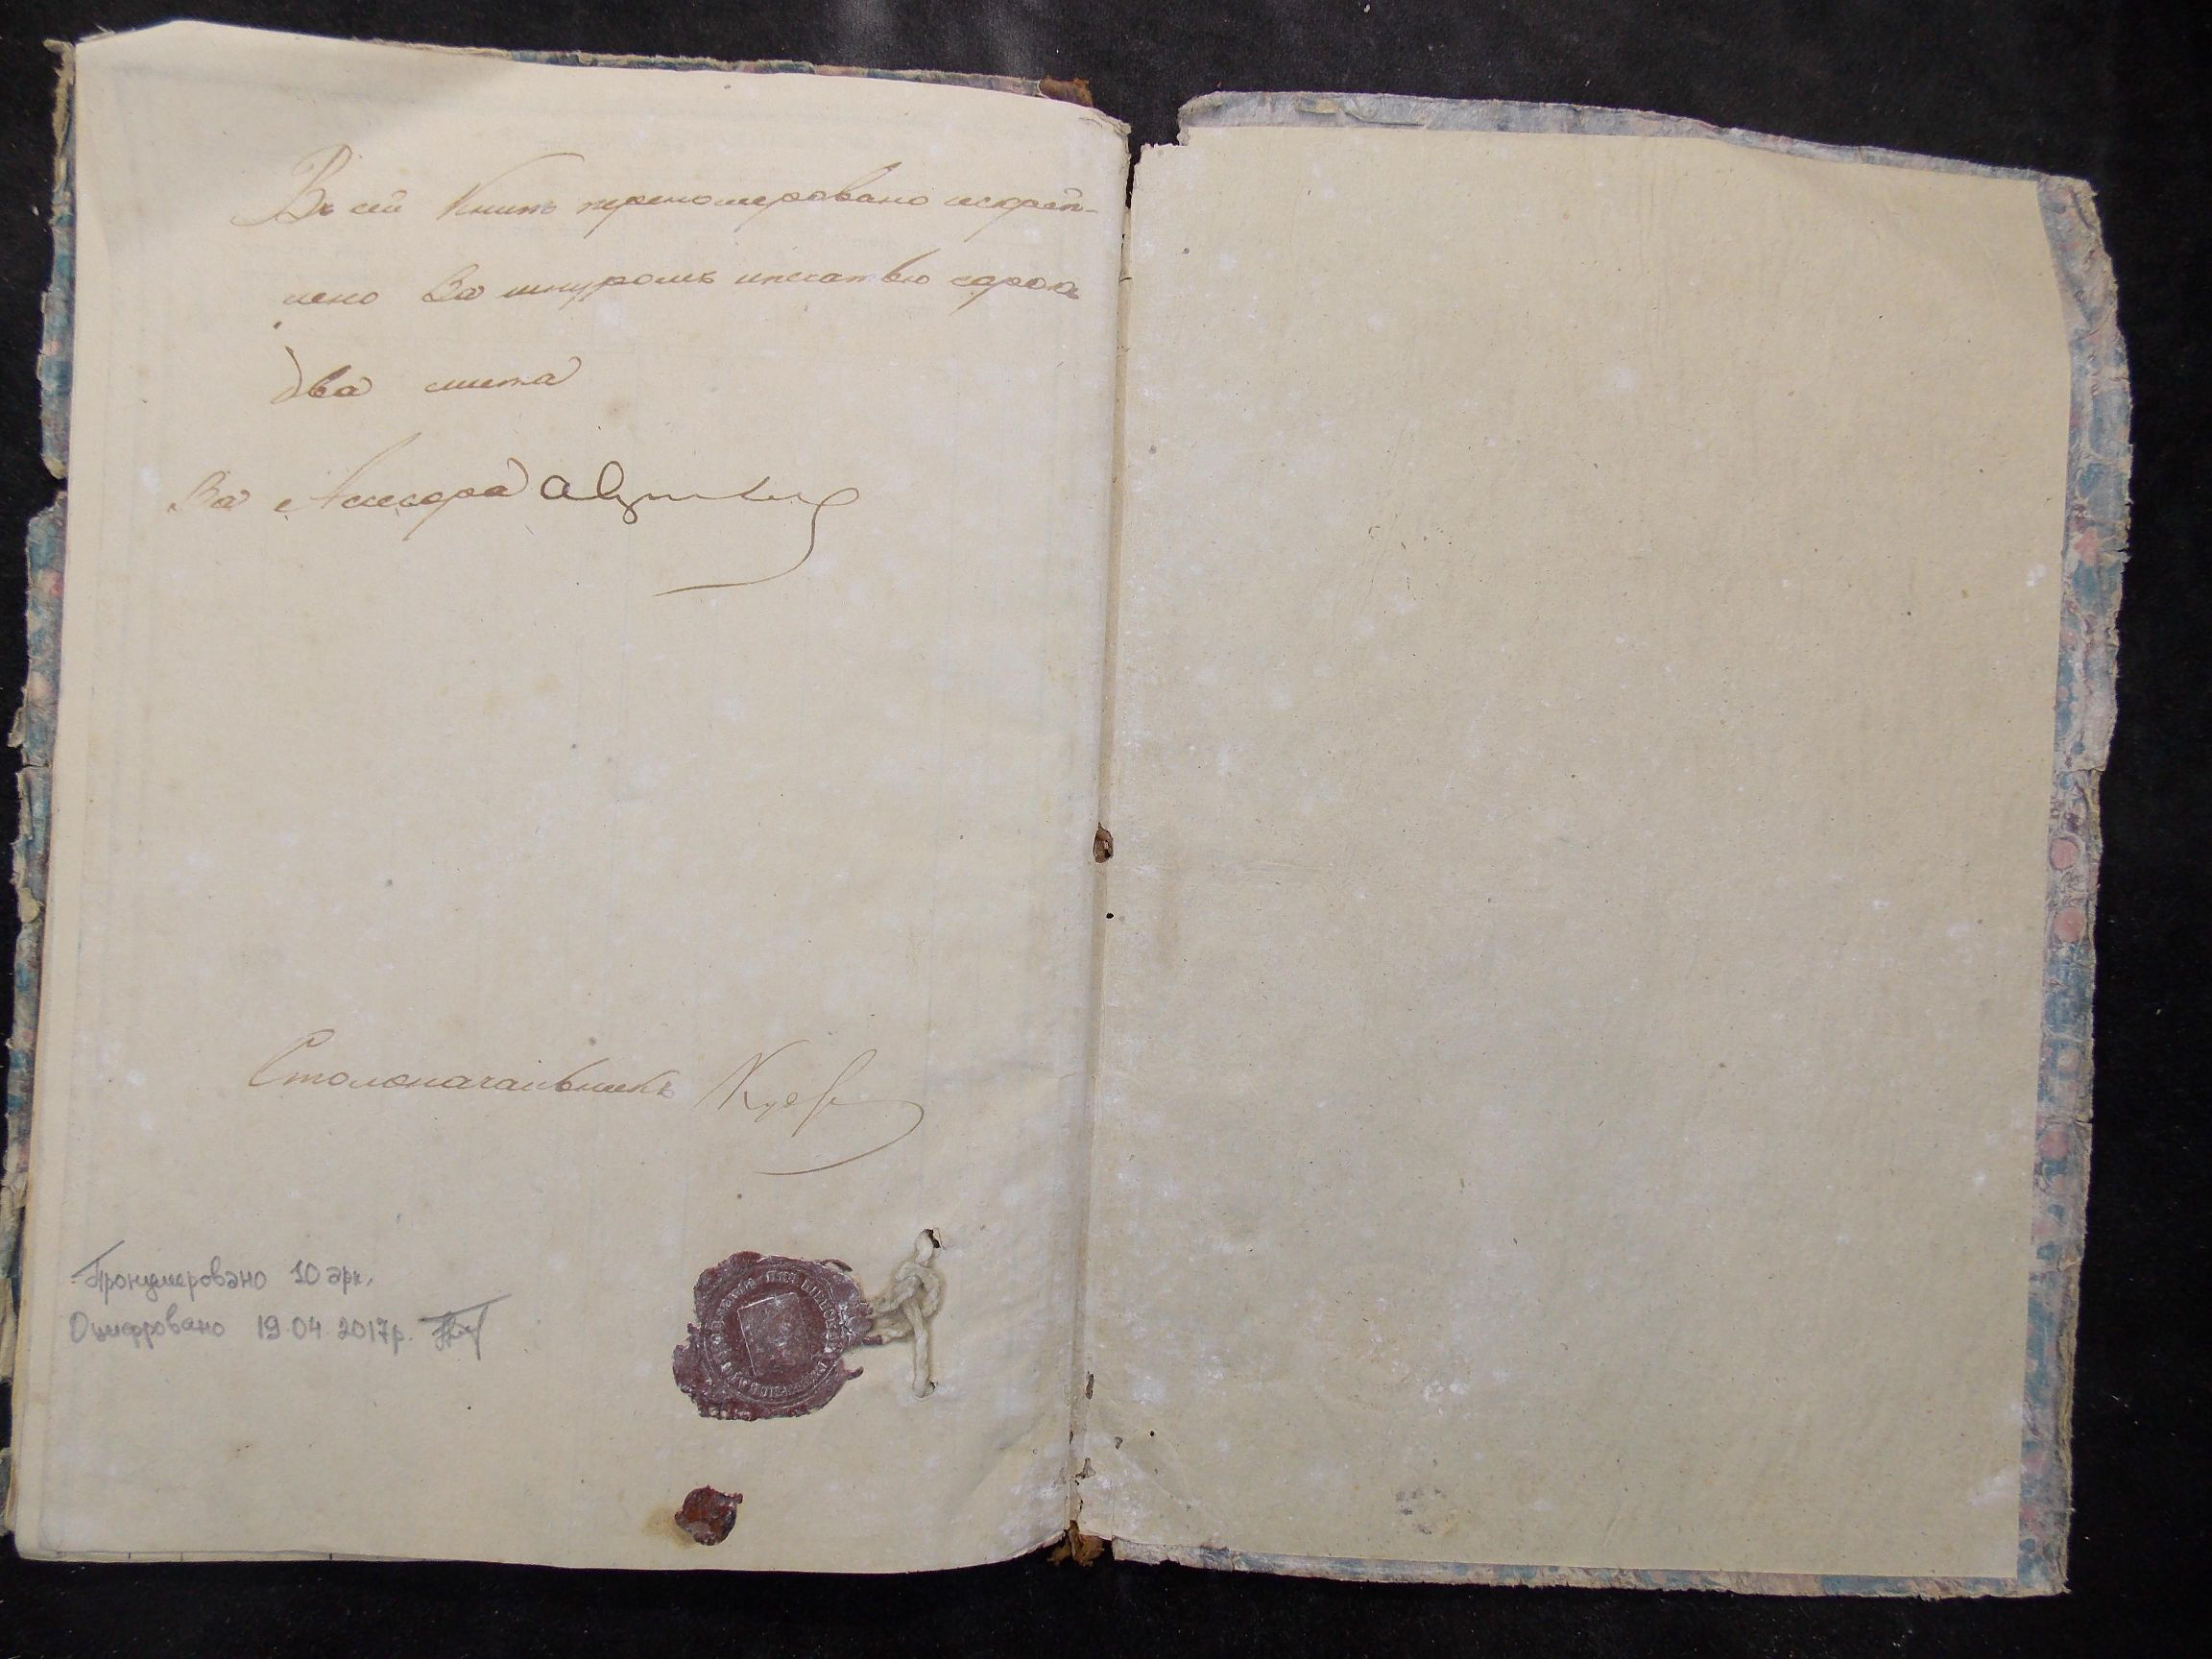 Въ сей Книгѣ перенумеровано искреп-
лено За шнуромъ ипечатью сорокъ
два листа
За Асесора
Столоначальникъ
Пронумеровано 10 арк.
Оцифровано 19.04.2017р.